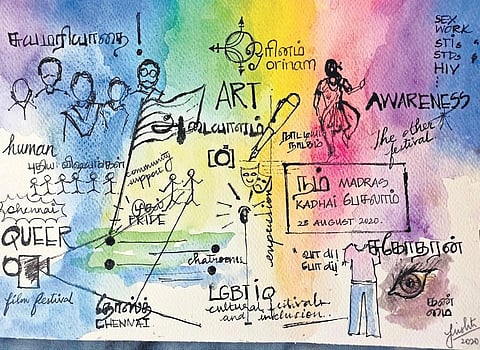 சுயமரியாதை!
ஓரினம்
orinam
SEX
WORK
STIs
STDs
HIV
...
ART
அடையாளம்
AWARENESS
the other
festival
human
community
support
நாட்டிய
நாடகம்
chennai
QUEER
PRIDE
expression
நம் MADRAS
KADHAI பேசலாம்
23 AUGUST 2020.
வா டி!
போ டி!
சகோதரன்
film festival
chatrooms
CHENNAI
LGBTiQ
cultural festivals
and inclusion..
கண்
மை
2020